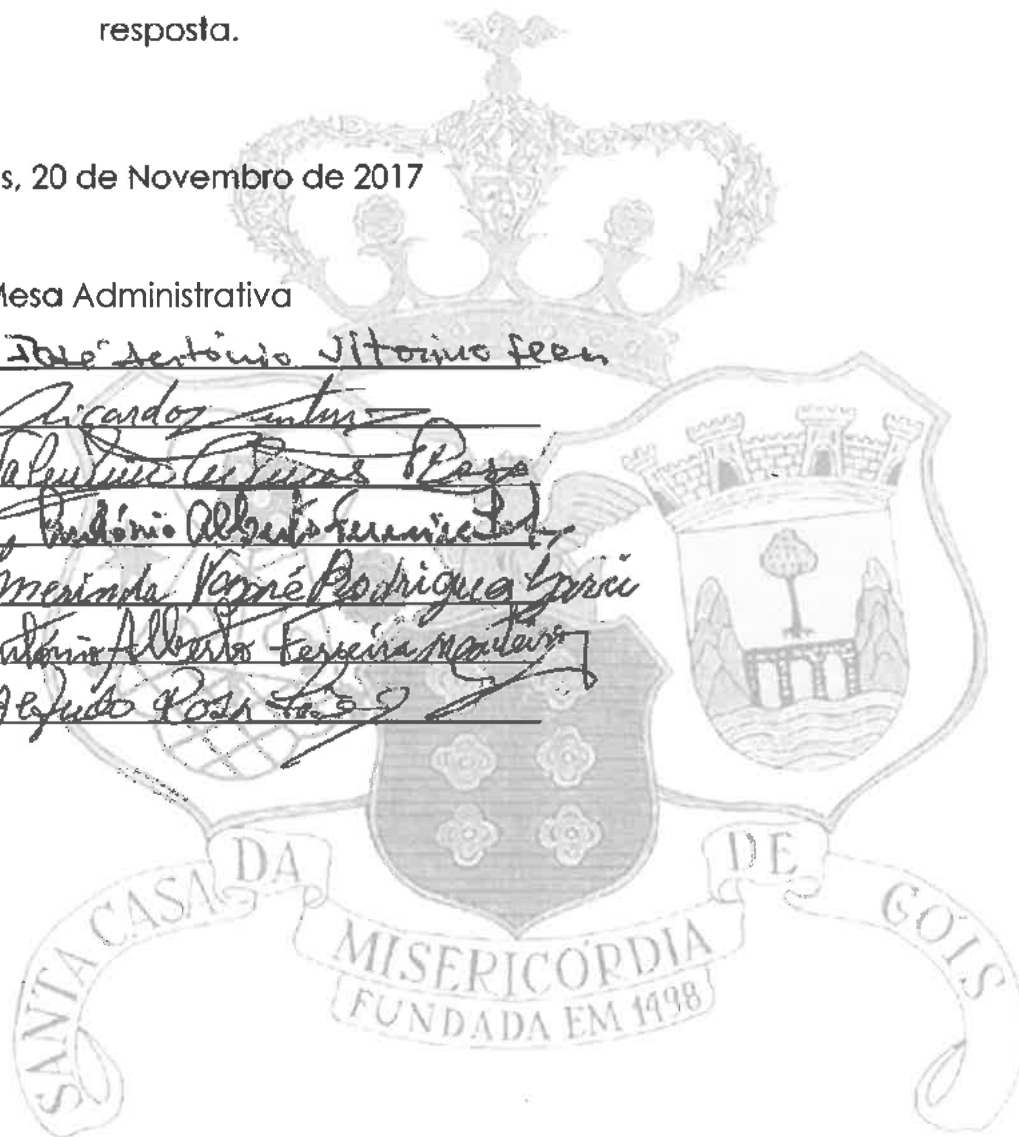 resposta.
s, 20 de Novembro de 2017
Mesa Administrativa
José António Vitorino
Ricardo
António Alberto
Rodrigues
António Alberto Ferreira Monteiro
Rosa
SANTA CASA DA MISERICÓRDIA DE GÓIS
FUNDADA EM 1498